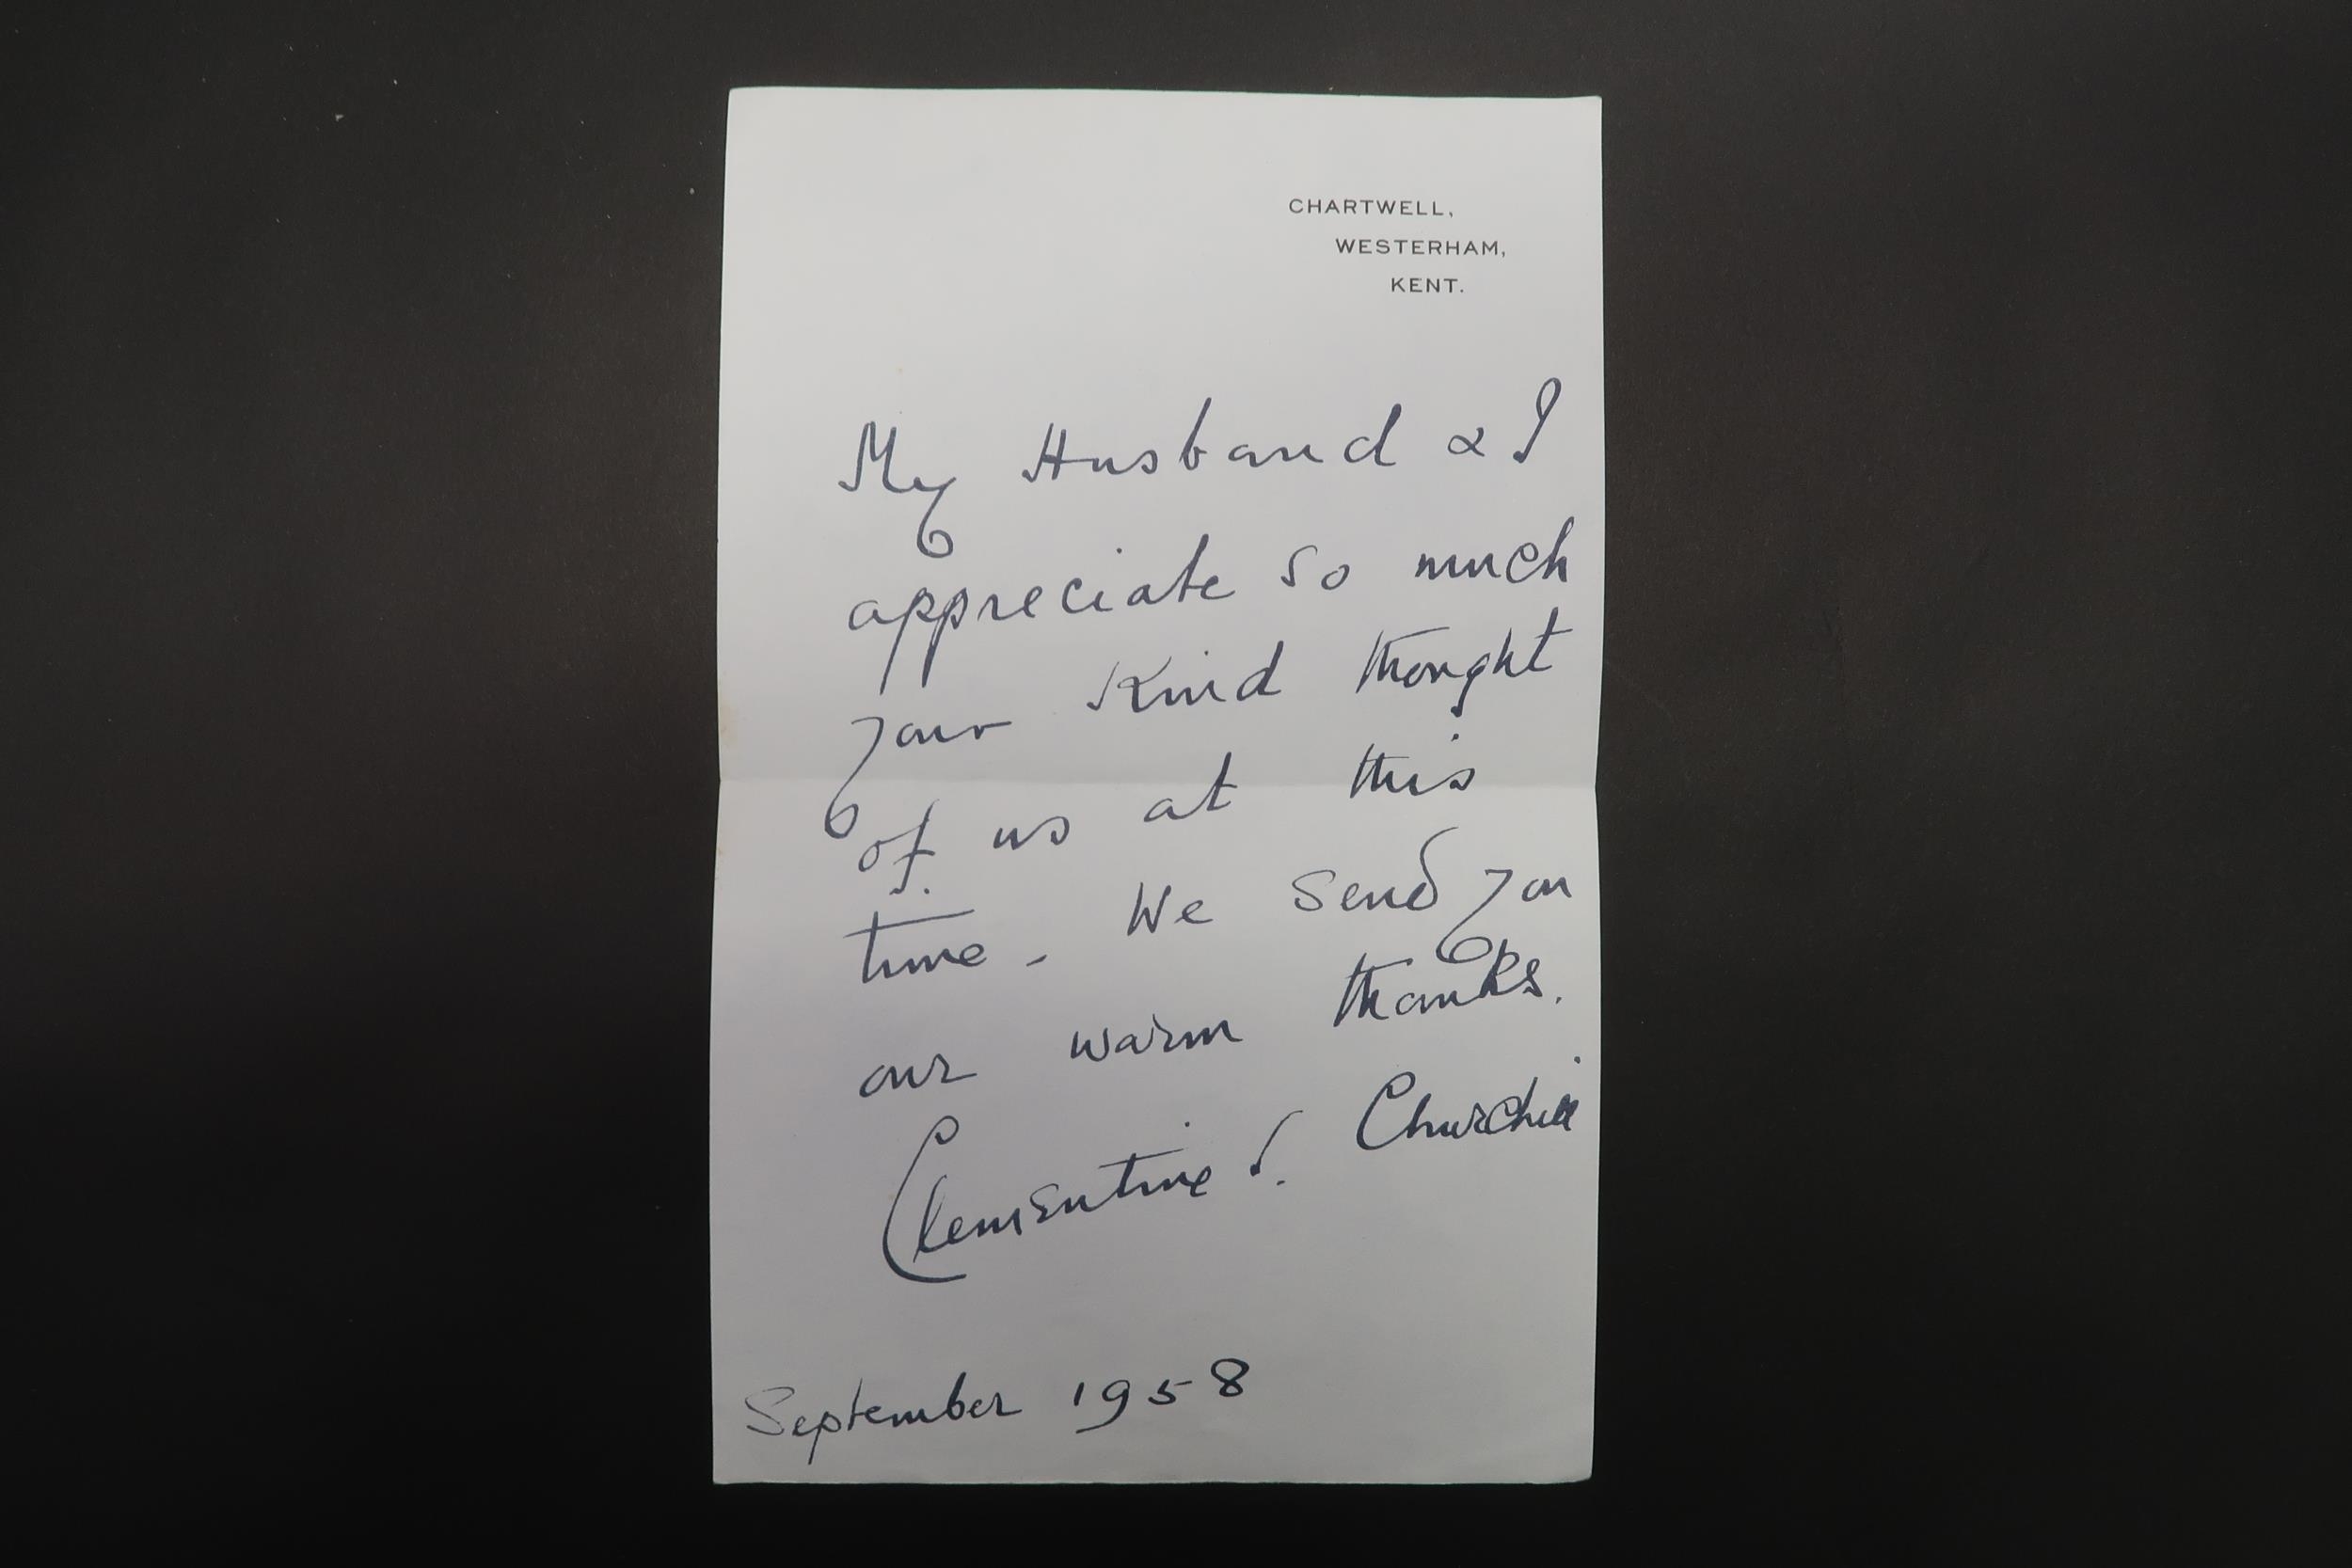 CHARTWELL,
WESTERHAM,
KENT.
My Husband & I
appreciate so much
your Kind thought
of us at this
time - We send you
our warm thanks.
Clementine S. Churchill
September 1958